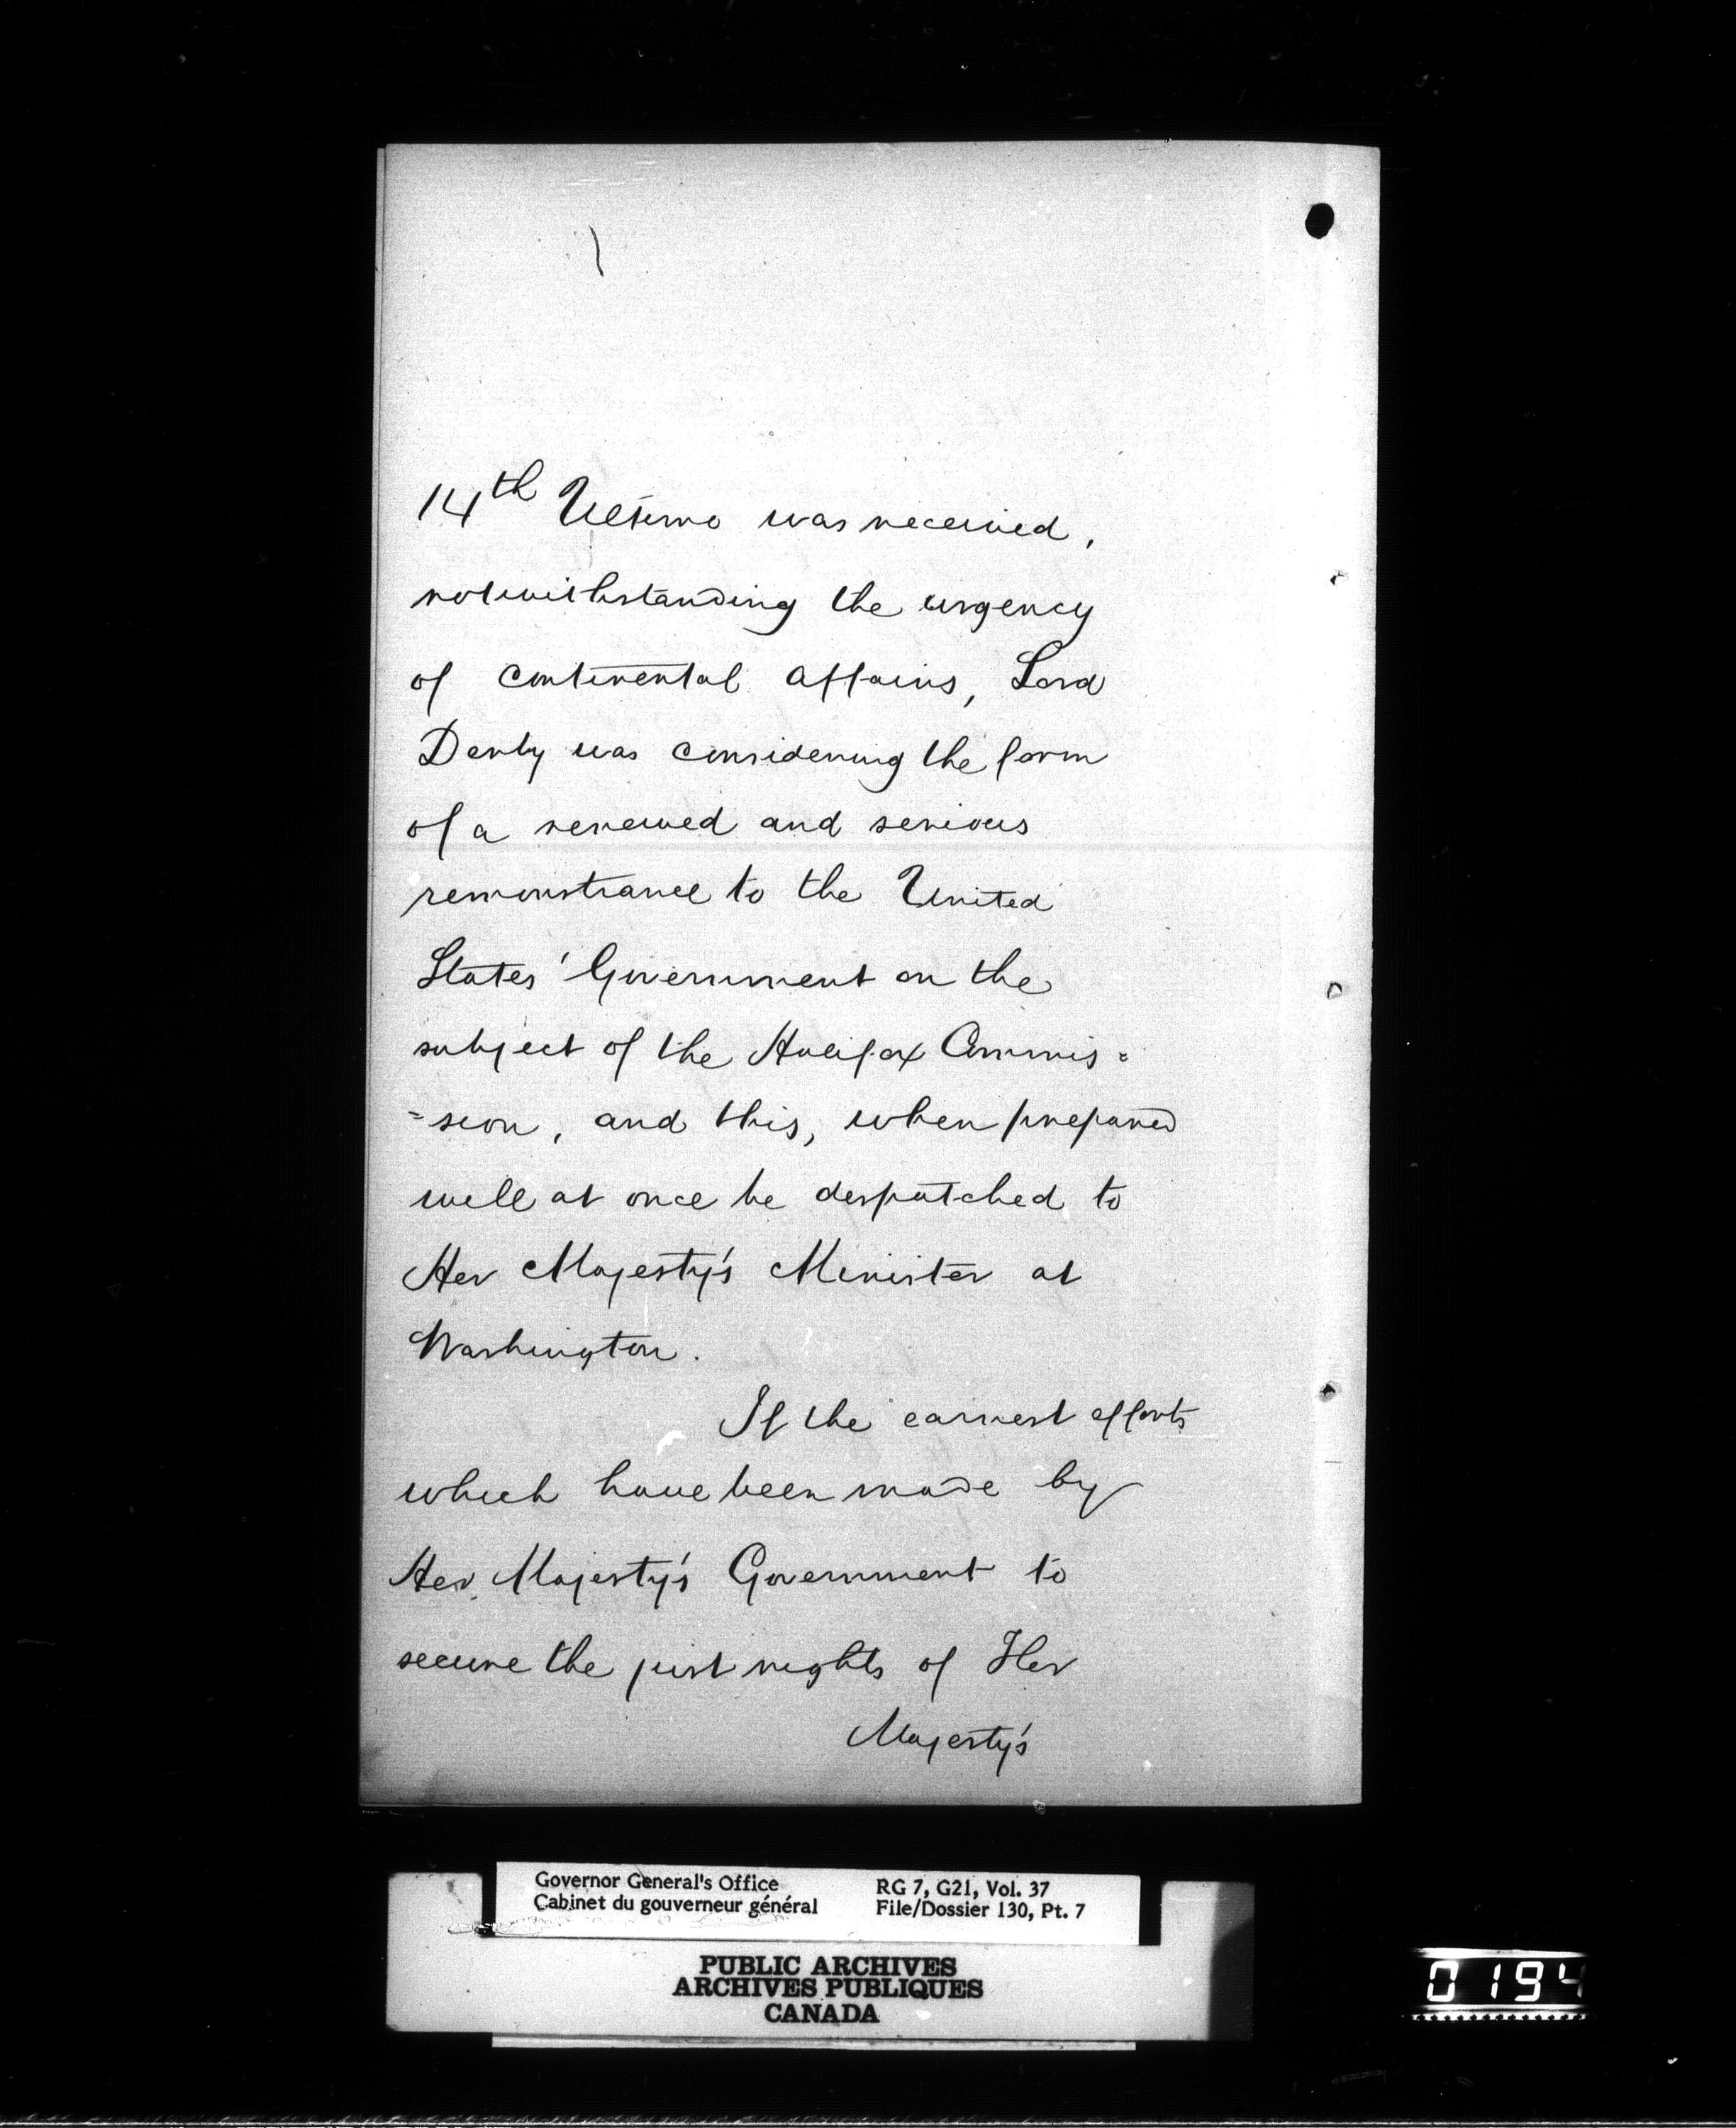 14th Ultimo was received,
notwithstanding the urgency
of continental affairs, Lord
Derby was considering the form
of a renewed and serious
remonstrance to the United
States' Government on the
subject of the Halifax Commis=
=sion, and this, when prepared
will at once be despatched to
Her Majesty's Minister at
Washington.
If the earnest efforts
which have been made by
Her Majesty's Government to
secure the just rights of Her
Majesty's
Governor General's Office RG 7, G21, Vol. 37
Cabinet du gouverneur général File/Dossier 130, Pt. 7
PUBLIC ARCHIVES
ARCHIVES PUBLIQUES
CANADA
0194